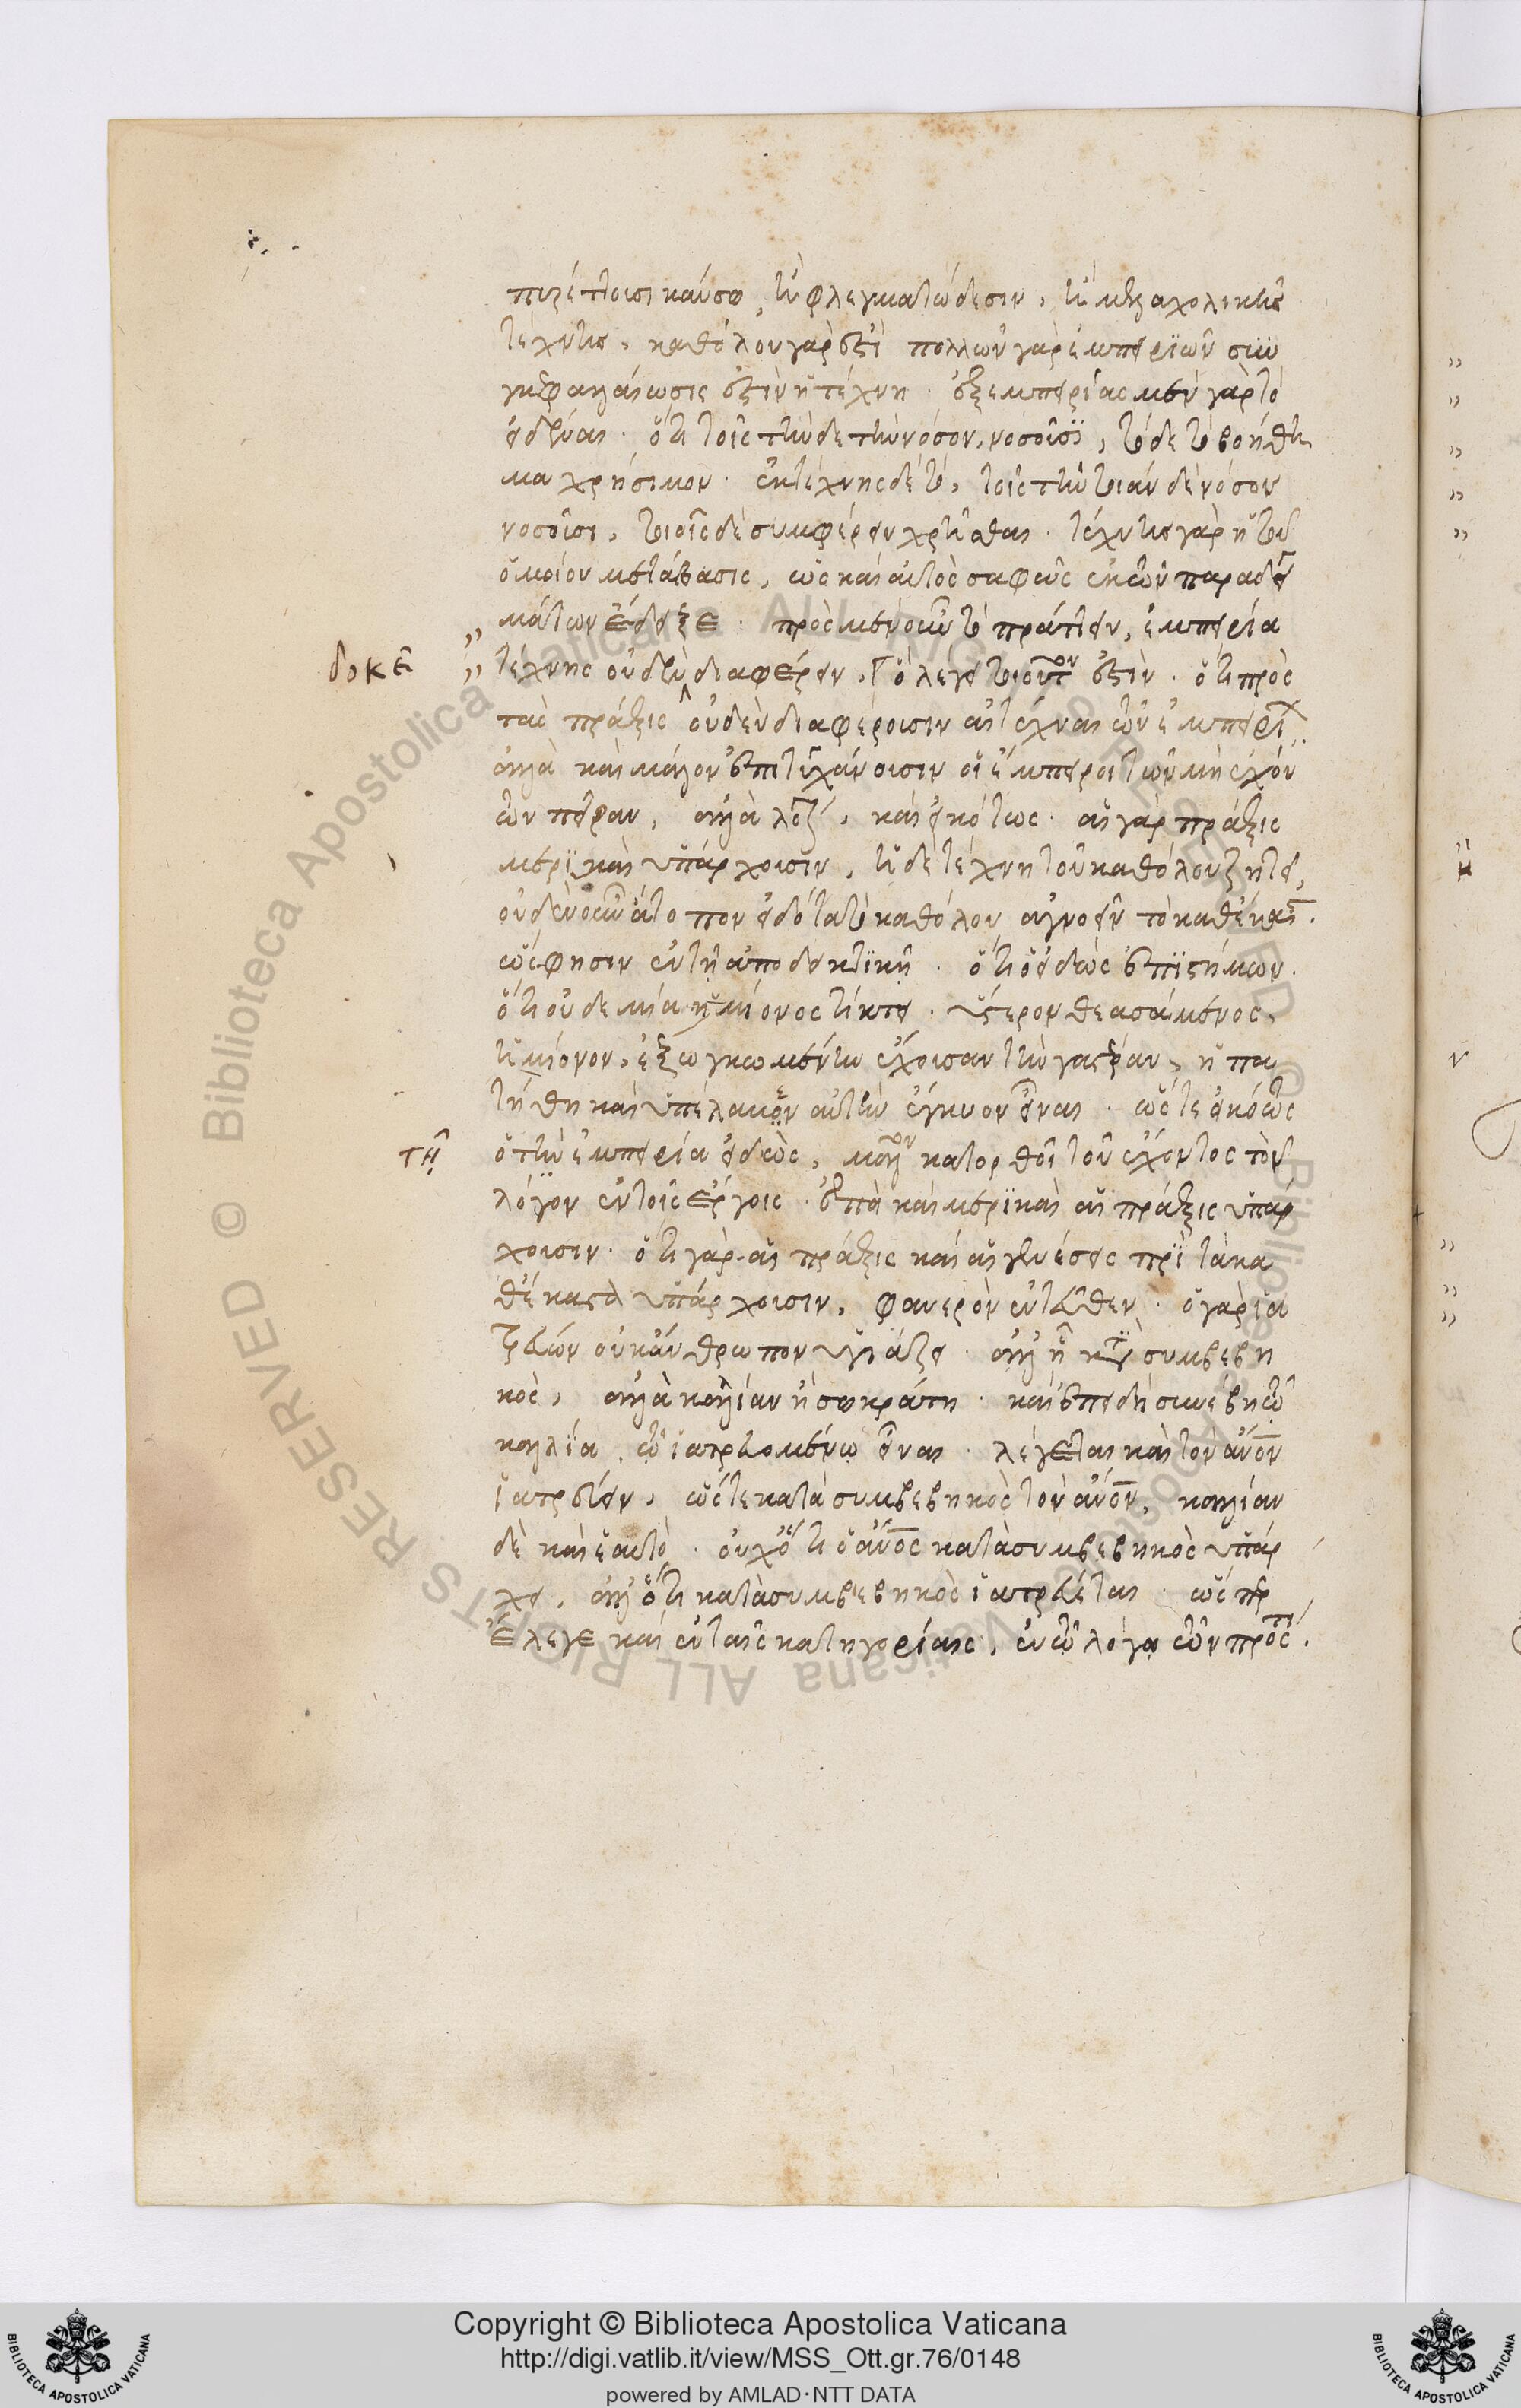 πυρέττουσι καύσω, ἢ φλεγματώδεσιν, ἢ μελαγχολικοῖς
τέχνης, καθόλου γὰρ ἐστὶ πολλῶν γὰρ ἐμπειριῶν συγ
κεφαλαίωσις ἐστὶν ἡ τέχνη. ἐξ ἐμπειρίας μὲν γὰρ τὸ
εἰδέναι. ὅτι τοῖς τήνδε τὴν νόσον νοσοῦσι, τόδε τὸ βοήθη
μα χρήσιμον. ἐκ τέχνης δὲ τό, τοῖς τὴν τοιάνδε νόσον
νοσοῦσι, τοιοῖσδε συμφέρειν χρῆσθαι. τέχνης γὰρ ἡ τοῦ
ὁμοίου μετάβασις, ὡς καὶ αὐτὸς σαφῶς ἐκ τῶν παραδειγ
μάτων ἔδειξε. πρὸς μὲν οὖν τὸ πράττειν, ἐμπειρία
δοκεῖ
τέχνης οὐδὲν διαφέρειν, ὃ λέγει τοιοῦτον ἐστὶν. ὅτι πρὸς
τὰς πράξεις οὐδὲν διαφέρουσιν αἱ τέχναι τῶν ἐμπειριῶν
ἀλλὰ καὶ μᾶλλον ἐπιτυγχάνουσιν οἱ ἔμπειροι τῶν μὴ ἐχόν
των πεῖραν, ἀλλὰ λόγον, καὶ εἰκότως. αἱ γὰρ πράξεις
μερικαὶ ὑπάρχουσιν, ἡ δὲ τέχνη τοῦ καθόλου ζητεῖ,
οὐδὲν οὖν ἄτοπον εἰδότα τὸ καθόλου ἀγνοεῖν τὸ καθέκαστον.
ὥς φησιν ἐν τῇ ἀποδεικτικῇ. ὅτι ὁ εἰδὼς ἐπιστήμων.
ὅτι οὐδεμία ἡμίονος τίκτει. ὕστερον θεασάμενος,
ἡμίονον, ἐξωγκωμένην ἔχουσαν τὴν γαστέραν, ἠπα
τήθη καὶ ὑπέλαβεν αὐτὴν ἔγκυον εἶναι. ὥστε εἰκότως
τῇ
ὁ τὴν ἐμπειρία εἰδὼς, μᾶλλον κατορθοῖ τοῦ ἔχοντος τὸν
λόγον ἐν τοῖς ἔργοις. ἐπεὶ καὶ μερικαὶ αἱ πράξεις ὑπάρ
χουσιν. ὅτι γὰρ αἱ πράξεις καὶ αἱ γενέσεις περὶ τὰ κα
θέκαστα ὑπάρχουσιν, φανερὸν ἐντεῦθεν. ὁ γὰρ ἰα
τρεύων οὐκ ἄνθρωπον ὑγιάζει. ἀλλ' ἢ κατὰ συμβεβη
κὸς, ἀλλὰ καλλίαν ἢ σωκράτη. καὶ ἐπειδὴ συνέβη τῷ
καλλία, τῷ ἰατρευομένῳ εἶναι. λέγεται καὶ τὸν ἄνον
ἰατρεύειν, ὥστε κατὰ συμβεβηκὸς τὸν ἄνον, καλλίαν
δὲ καθ' ἑαυτὸ. οὐχ ὅτι ὁ ἄνος κατὰ συμβεβηκὸς ὑπάρ
χει, ἀλλ' ὅτι κατὰ συμβεβηκὸς ἰατρεύεται. ὥσπερ
ἔλεγε καὶ ἐν ταῖς κατηγορίαις, ἐν τῷ λόγῳ τῶν πρός τι.
Copyright © Biblioteca Apostolica Vaticana
http://digi.vatlib.it/view/MSS_Ott.gr.76/0148
powered by AMLAD·NTT DATA